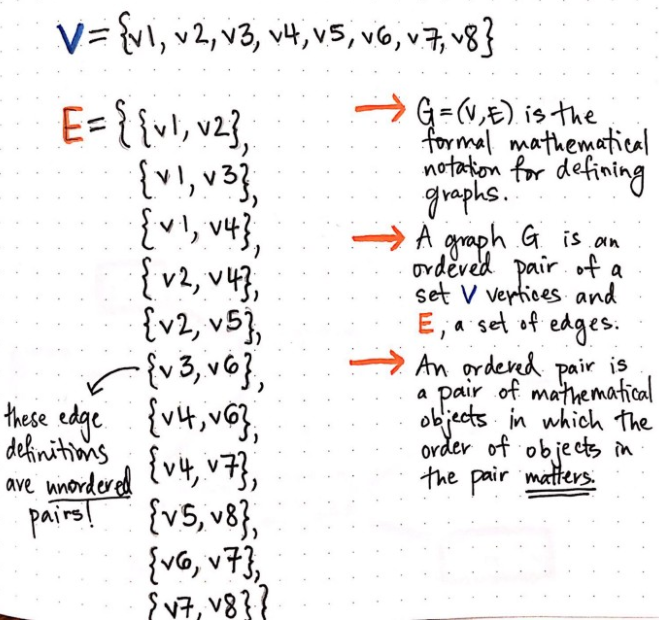 V={v1, v2, v3, v4, v5, v6, v7, v8}
E={{v1, v2},
{v1, v3},
{v1, v4},
{v2, v4},
{v2, v5},
{v3, v6},
{v4, v6},
{v4, v7},
{v5, v8},
{v6, v7},
{v7, v8}}
these edge
definitions
are unordered
pairs!
→ G=(V,E) is the
formal mathematical
notation for defining
graphs.
→ A graph G is an
ordered pair of a
set V vertices and
E, a set of edges.
→ An ordered pair is
a pair of mathematical
objects in which the
order of objects in
the pair matters.